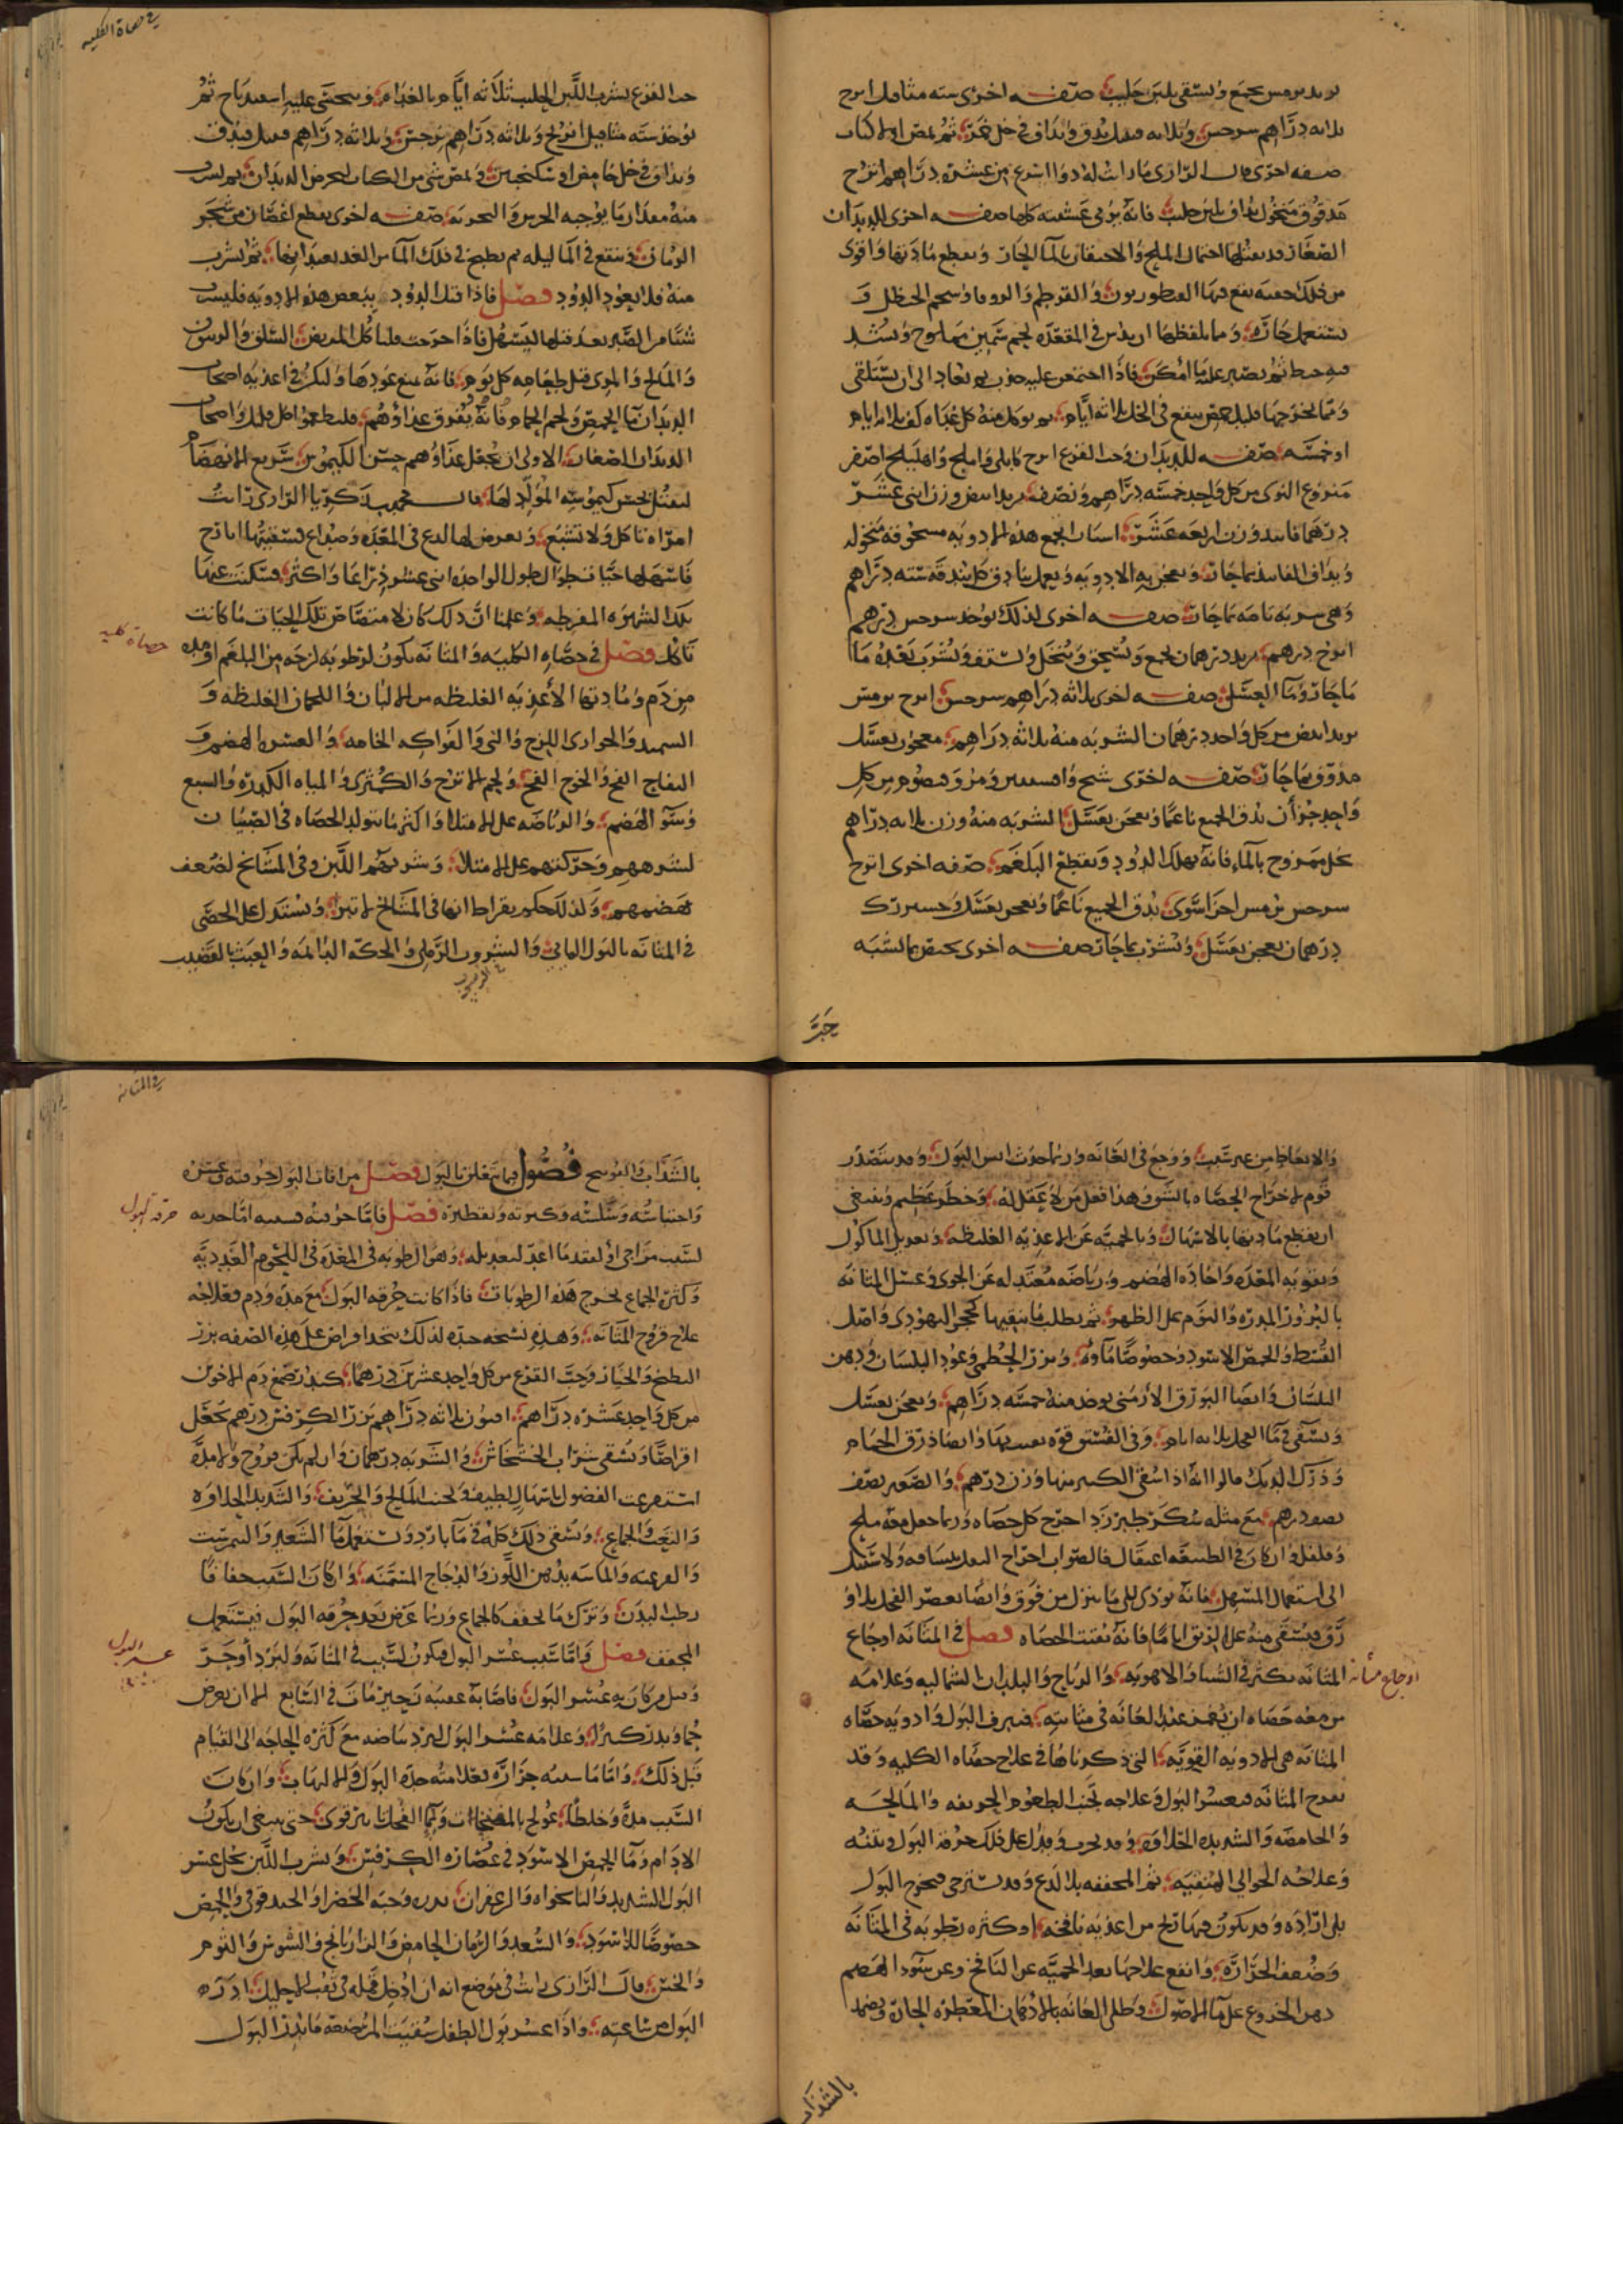 تربد ترمس يجمع ويسقى بلبن حليب صفه اخرى سته مثاقيل ابرنج
ثلاثه دراهم سرخس وثلاثه قنبيل يدق ويداف في خل خمر ثم يمص اولا كباب
صفه اخرى قال الرازى ما رايت له دوا اسرع من عشرة دراهم ابرنج
مدقوق منخول يداف بلبن حليب فانه يرمى عشيته كلها صفه اخرى للديدان
الصغار قد يقتلها احتمال الملح والاحتقان بالما الحار ويقطع مادتها واقوى
من ذلك حقنه يقع فيها القنطوريون والقرطم والزوفا وشحم الحنظل و
يستعمل حاره ومما يلقطها ان يدس في المقعده لحم سمين مملوح ويشد
فيه خيط ثم يصبر عليه ما أمكن فاذا اجتمعن عليه جذب ثم يعاد الى ان يستنقى
ومما يخرجها قليل حمص ينقع في الخل ثلاثه ايام ثم يوكل منه كل غداه كف ثلاثه ايام
او خمسه صفه للديدان وحب القرع ابرنج كابلى واملج واهليلج اصفر
منزوع النوى من كل واحد خمسه دراهم ونصف تربد ابيض وزن اثنى عشر
درهما فانيد وزن اربعه عشر استارا تجمع هذه الادويه مسحوقه منخوله
ويذاف الفانيد بماحار ويعجن به الادويه ويعمل بنادق كل بندقه سته دراهم
وهى شربه تامه بماحار صفه اخرى لذلك يوخذ سرخس درهم
ابرنج درهم تربد درهمان يجمع ويسحق وينخل ويستف ويشرب بعده ما
ماحار وما العسل صفه اخرى ثلاثه دراهم سرخس ابرنج ترمس
تربد ابيض من كل واحد درهمان الشربه منه ثلاثه دراهم معجون بعسل
مدوف بماحار صفه اخرى شيح وافسنتين ومر وقيصوم من كل
واحد جزأ يدق الجميع ناعما ويعجن بعسل الشربه منه وزن ثلاثه دراهم
بخل ممزوج بالماء فانه يهلك الدود ويقطع البلغم صفه اخرى ابرنج
سرخس ترمس اجزا سوى يدق الجميع ناعما ويعجن بعسل
درهمان يعجن بعسل ويشرب بماحار صفه اخرى يختص بما لشبه
حب
في حصاة الكليه
حب القرع يشرب اللبن الحليب ثلاثه ايام بالغداه ويتحسى عليه اسفيدباج ثم
يوخذ سته مثاقيل ابرنج وثلاثه دراهم سرخس وثلاثه دراهم قنبيل فيدق
ويداف في خل حامض او سكنجبين ويمص شى من الكباب ليحرص الديدان ثم يشرب
منه مقدار ما يوجبه الحدس والتجربه صفه اخرى يقطع اغصان من شجر
الرمان فينقع في الما ليله ثم يطبخ في ذلك الما من الغد بعد انها ثم يشرب
منه فلا يعود الدود فصل فاذا قتل الدود ببعض هذه الادويه فليشرب
شيئا من الصبر بعد قتلها ليسهل فاذا خرجت فليأكل المريض السلق والزيتون
والمالح والمرى قبل طعامه كل يوم فانه يمنع عودها وليكن في اغذيه اصحاب
الديدان ما الحمص ولحم الحمام فانه يفوق غذاؤهم فليطعموا كل قليل واصحاب
الديدان الصغار الاولى ان يجعل غذاؤهم حسن الكيموس سريع الانهضام
ليقتل بحسن كيموسه المولد لها قال محمد بن زكريا الرازى رايت
امراه تاكل ولا تشبع ويعرض لها لدع في المعده وصداع فسقيتها ايارج
فاسهلها حيات طوال طول الواحده اثنى عشر ذراعا واكثر فسكنت عنها
تلك الشهوه المفرطه وعلمنا ان ذلك كان لامتصاص تلك الحيات ما كانت
تاكل فصل في حصاه الكليه والمثانه يكون لرطوبه لزجه من البلغم او مده
حصاة كليه
من دم ومادتها الأغذيه الغليظه من الالبان واللحمان الغليظه و
السميد والحوارى اللزج والنى والفواكه الخامه والعسره الهضم و
التفاح الفج والخوخ الفج ولحم الاترج والكمثرى والمياه الكدره والشبع
وسو الهضم والرياضه على الامتلا واكثر ما يتولد الحصاه في الصبيان
لشرههم وحركتهم على الامتلا وشربهم اللبن وفي المشايخ لضعف
هضمهم ولذلك حكم بقراط انها في المشايخ لا تبرا ويستدل على الحصى
في المثانه بالبول المايى والرسوب الرملى والحكه الدائمه والعبث بالقضيب
والانعاظ من غير سبب ووجع في العانه وربما حدث اسر البول وقد يتصدر
قوم لاخراج الحصاه بالشق وهذا فعل من لا يعقل له وخطر عظيم وينبغى
ان يقطع مادتها بالاسهال وبالحميه عن الاغذيه الغليظه وتعديل الماكول
وتقويه المعده واجاده الهضم ورياضه معتدله عن الجرى وغسل المثانه
بالبزور المدره والنوم على الظهر ثم يطلب ما ينقيها كحجر اليهودى واصل
القسط والحمص الاسود وخصوصا ماؤه وبزر الخطمى وعود البلسان ودهن
البلسان وايضا البورق الأرمنى يوخذ منه خمسه دراهم ويعجن بعسل
ويسقى في ما الفجل ثلاثه ايام وفي الفستق قوه يفتتها وايضا ذرق الحمام
وذرق الديك قالوا انه اذا سقى الكبير منها وزن درهم والصغير نصف
نصف درهم مع مثله سكر طبرزد اخرج كل حصاه وربما جعل معه ملح
وفلفل وان كان في الطبيعه اعتقال فالصواب اخراج الثفل ولا سبيل
الى استعمال المسهل فانه يودى الى ما ينزل من فوق وايضا يعصر الفجل بلا و
رق ويسقى منه على الريق اياما فانه يفتت الحصاه فصل في المثانه اوجاع
اوجاع مثانه
المثانه تكثر في الشتا والاهويه والرياح والبلدان الشماليه وعلامه
من معه حصاه ان يغمز عند العانه في مثانته فيبرق البول وادويه حصاه
المثانه هى الادويه القويه التى ذكرناها في علاج حصاه الكليه وقد
يعرج المثانه فيعسر البول وعلاجه تجنب الطعوم الحريفه والمالحه
والحامضه والشديده الحلاوه وقد يجرب ويدل على ذلك حرقه البول ونتنه
وعلاجه الحوالى المنقيه ثم المجففه بلا لدع وقد تسترخى فيخرج البول
بلا اراده وقد يكون فيها ريح من اغذيه نافخه او كثره رطوبه في المثانه
وضعف الحراره وانفع علاجها بعد الحميه عن النافخ وعن سو الهضم
دهن الخروع على ما الاصول وطلى العانه بالادهان العطره الحاره ويضمد
بالسذاب
في المثانه
بالسذاب والفوتنج فصول فيما يتعلق بالبول فصل من افات البول حرقته وعسره
واحتباسه وسلسه وكثرته وتقطيره فصل فاما حرقته فسببه اما حده
حرقة البول
لسبب مزاجى او لفقد ما اعد لتعديله وهو الرطوبه في المعده في اللحوم الغدديه
وكثره الجماع تخرج هذه الرطوبات فاذا كانت حرقه البول مع مده ودم فعلاجه
علاج قروح المثانه وهذه نسخه جيده لذلك يتخذ اقراص على هذه الصفه بزر
البطيخ والخيار وحب القرع من كل واحد عشرين درهما كندر صمغ دم الاخوين
من كل واحد عشره دراهم افيون ثلاثه دراهم بزر الكرفس درهم يجعل
اقراصا ويسقى شراب الخشخاش والشربه درهمان وان لم يكن قروح ولا مده
استفرغت الفضول باسهال لطيف وتجنب المالح والحريف والشديد الحلاوه
والتعب والجماع ويسقى ذلك كله في ما بارد ويستعمل ما الشعير والسرمق
والقرعيه والماشيه بدهن اللوز والدجاج المسمنه وان كان السبب جفافا
رطب البدن وترك ما يجفف كالجماع وربما عرض بعد حرقه البول فيستعمل
المجفف فصل واما سبب عسر البول فيكون لسبب في المثانه ولبرد أو حر
عسر البول
وقيل من كان به عسر البول فاصابه عقيبه زحير مات في السابع الا ان يعرض
حمى وبدر كثير وعلامه عسر البول لبرد بياضه مع كثره الحاجه الى القيام
قبل ذلك واما ما سببه حراره فعلامته حده البول والالتهاب وان كان
السبب مده وخلطا عولج بالمفتحات وبما الفجل نافع قوى حتى ينبغى ان يكون
الادام وما الحمص الاسود في عصاره الكرفس وشرب اللبن يحل عسر
البول الشديد والنانخواه والزعفران يدره وحبه الخضرا والحندقوقى والحمص
خصوصا للاسود والسعد والرمان الحامض والرازيانج والسوس والثوم
والخس قال الرازى رايت في موضع انه ان ادخل قمله في ثقب الاحليل ادره
البول من ساعته واذا عسر بول الطفل سقيت المرضعه ما يدر البول